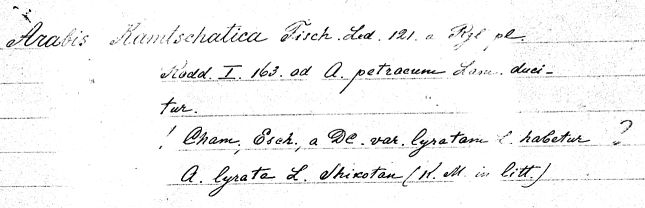 Arabis Kamtschatica Fisch. Led. 121. a Rgl pl.
Radd. I. 163. ad A. petraeum Lam. duci-
tur.
! Cham, Esch., a DC. var. lyratam L. habetur ?
A. lyrata L. Shikotan (K. M. in litt.)